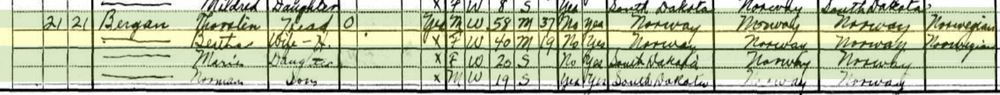 Mildred Daughter X F W 8 S Yes South Dakota Norway South Dakota
21 21 Bergan Thorsten Head O Yes M W 58 M 37 No Yes Norway Norway Norway Norwegian
Bertha Wife-H X F W 40 M 19 No Yes Norway Norway Norway Norwegian
Marie Daughter X F W 20 S No Yes South Dakota Norway Norway
Norman Son X M W 19 S Yes Yes South Dakota Norway Norway